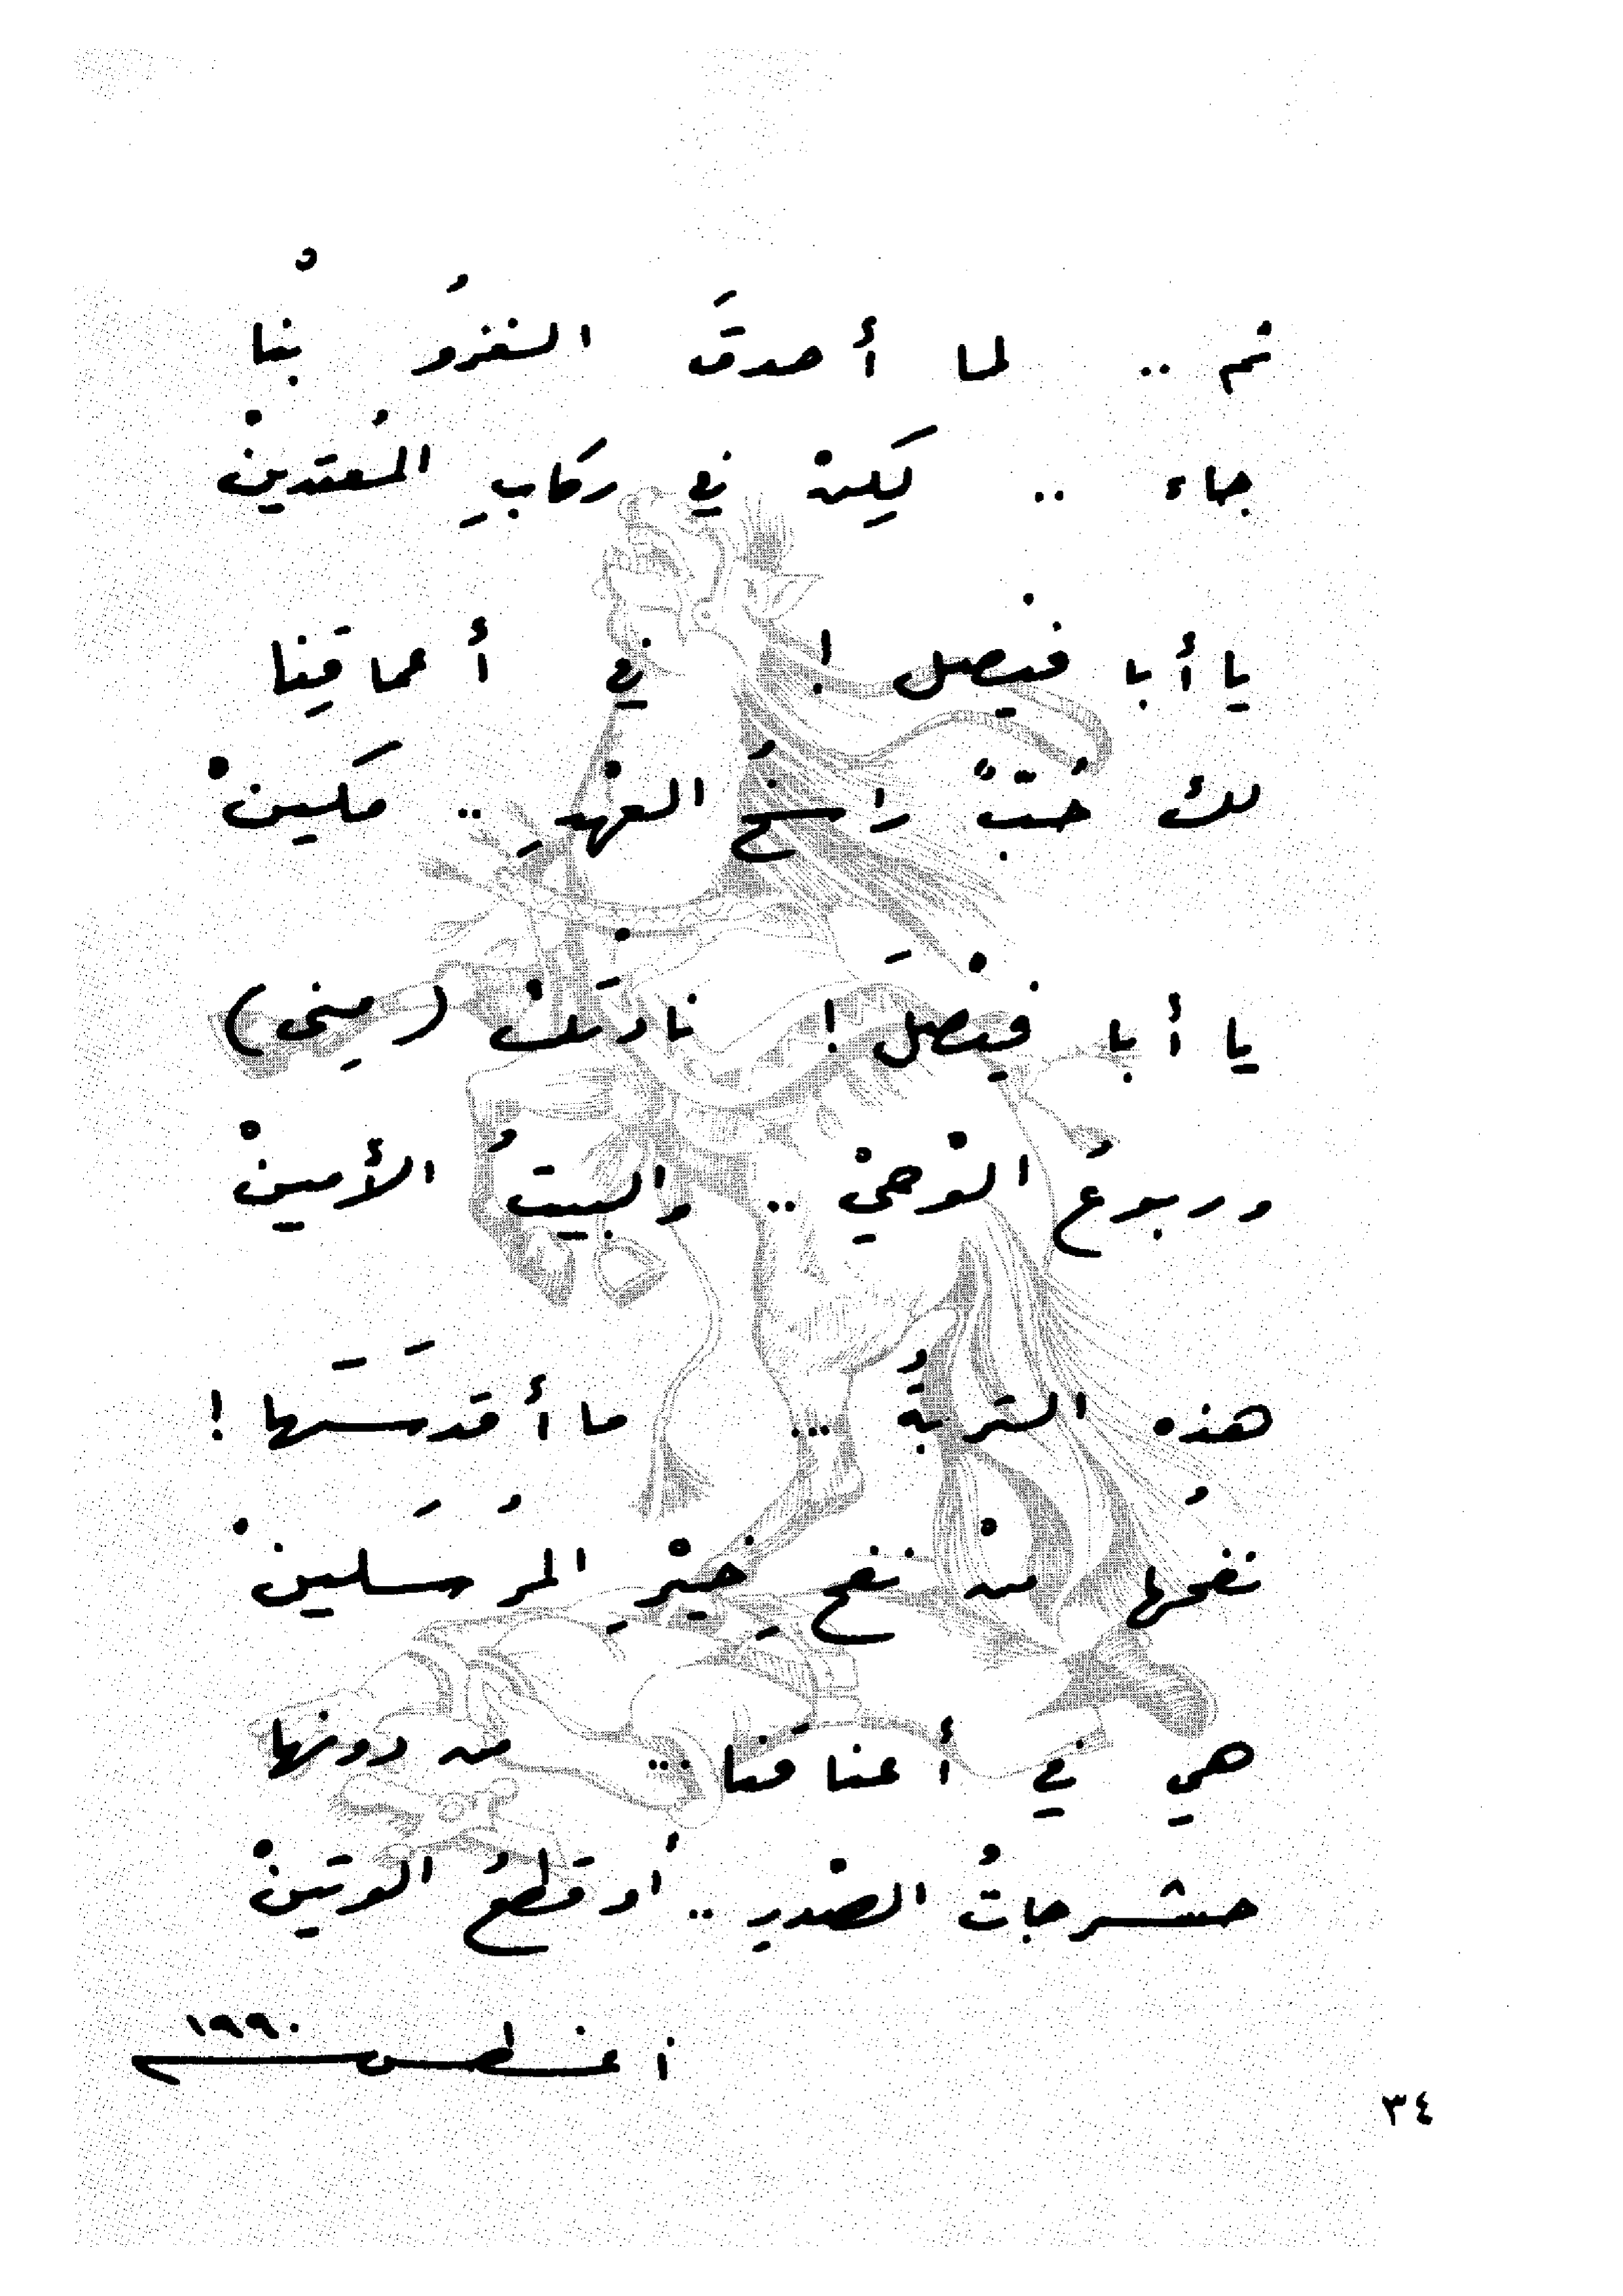 ثم .. لما أحدقَ الغزوُ بْنا
جاء .. لكِنْ في ركابِ المُعتدينْ
يا أبا فيصل ! في أعماقِنا
لك حُبٌّ راسخُ العهْدِ .. مَكينْ
يا أبا فيْصلَ ! نادتْكَ (مِنى)
وربوعُ الوحْيْ .. والبيتُ الأمينْ
هذه التربةُ ... ما أقدسَها !
نفحُها منْ نفحِ خيْرِ المُرسَلينْ
هي في أعناقنا ... من دونها
حشرجاتُ الصْدرِ .. أو قطعُ الوتينْ
أغسطس ١٩٩٠
٣٤